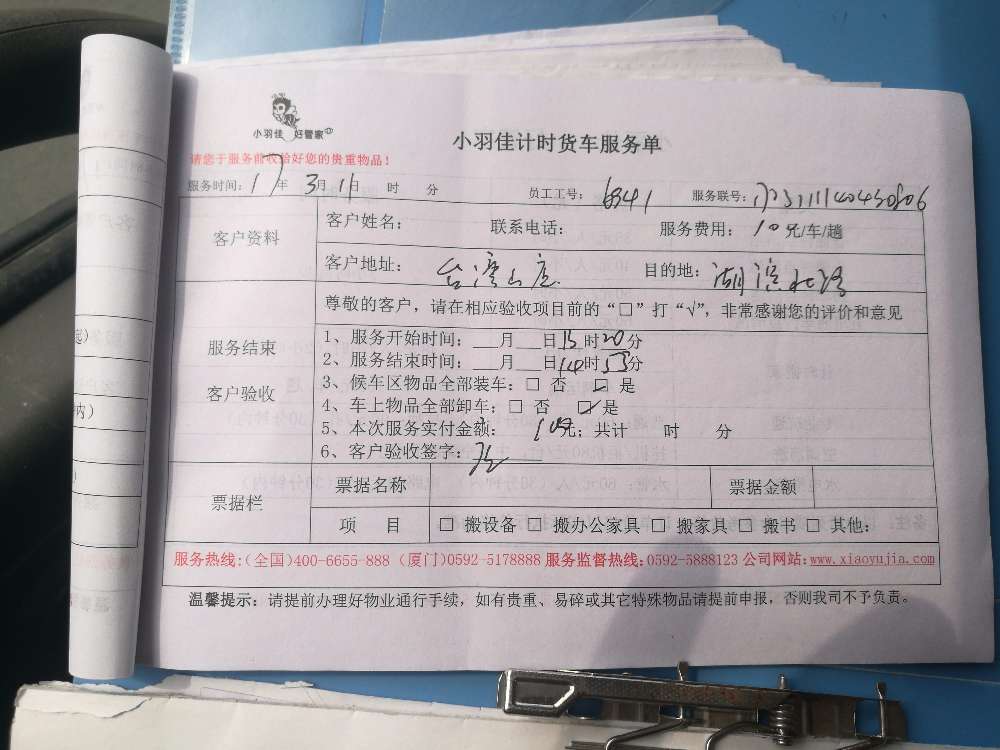 小羽佳 好管家
小羽佳计时货车服务单
请您于服务前收拾好您的贵重物品！
服务时间：17年3月11日 时 分 员工工号：6341 服务联号：
客户资料
客户姓名： 联系电话： 服务费用：10元/车/趟
客户地址：台湾山庄 目的地：湖滨北路
服务结束
客户验收
尊敬的客户，请在相应验收项目前的“□”打“√”，非常感谢您的评价和意见
1、服务开始时间：___月___日13时20分
2、服务结束时间：___月___日14时53分
3、候车区物品全部装车：□ 否 ☑ 是
4、车上物品全部卸车：□ 否 ☑是
5、本次服务实付金额： 元；共计 时 分
6、客户验收签字：
票据栏
票据名称 票据金额
项 目 □ 搬设备 □ 搬办公家具 □ 搬家具 □ 搬书 □ 其他：
服务热线：(全国)400-6655-888（厦门)0592-5178888 服务监督热线：0592-5888123 公司网站：www.xiaoyujia.com
温馨提示：请提前办理好物业通行手续，如有贵重、易碎或其它特殊物品请提前申报，否则我司不予负责。